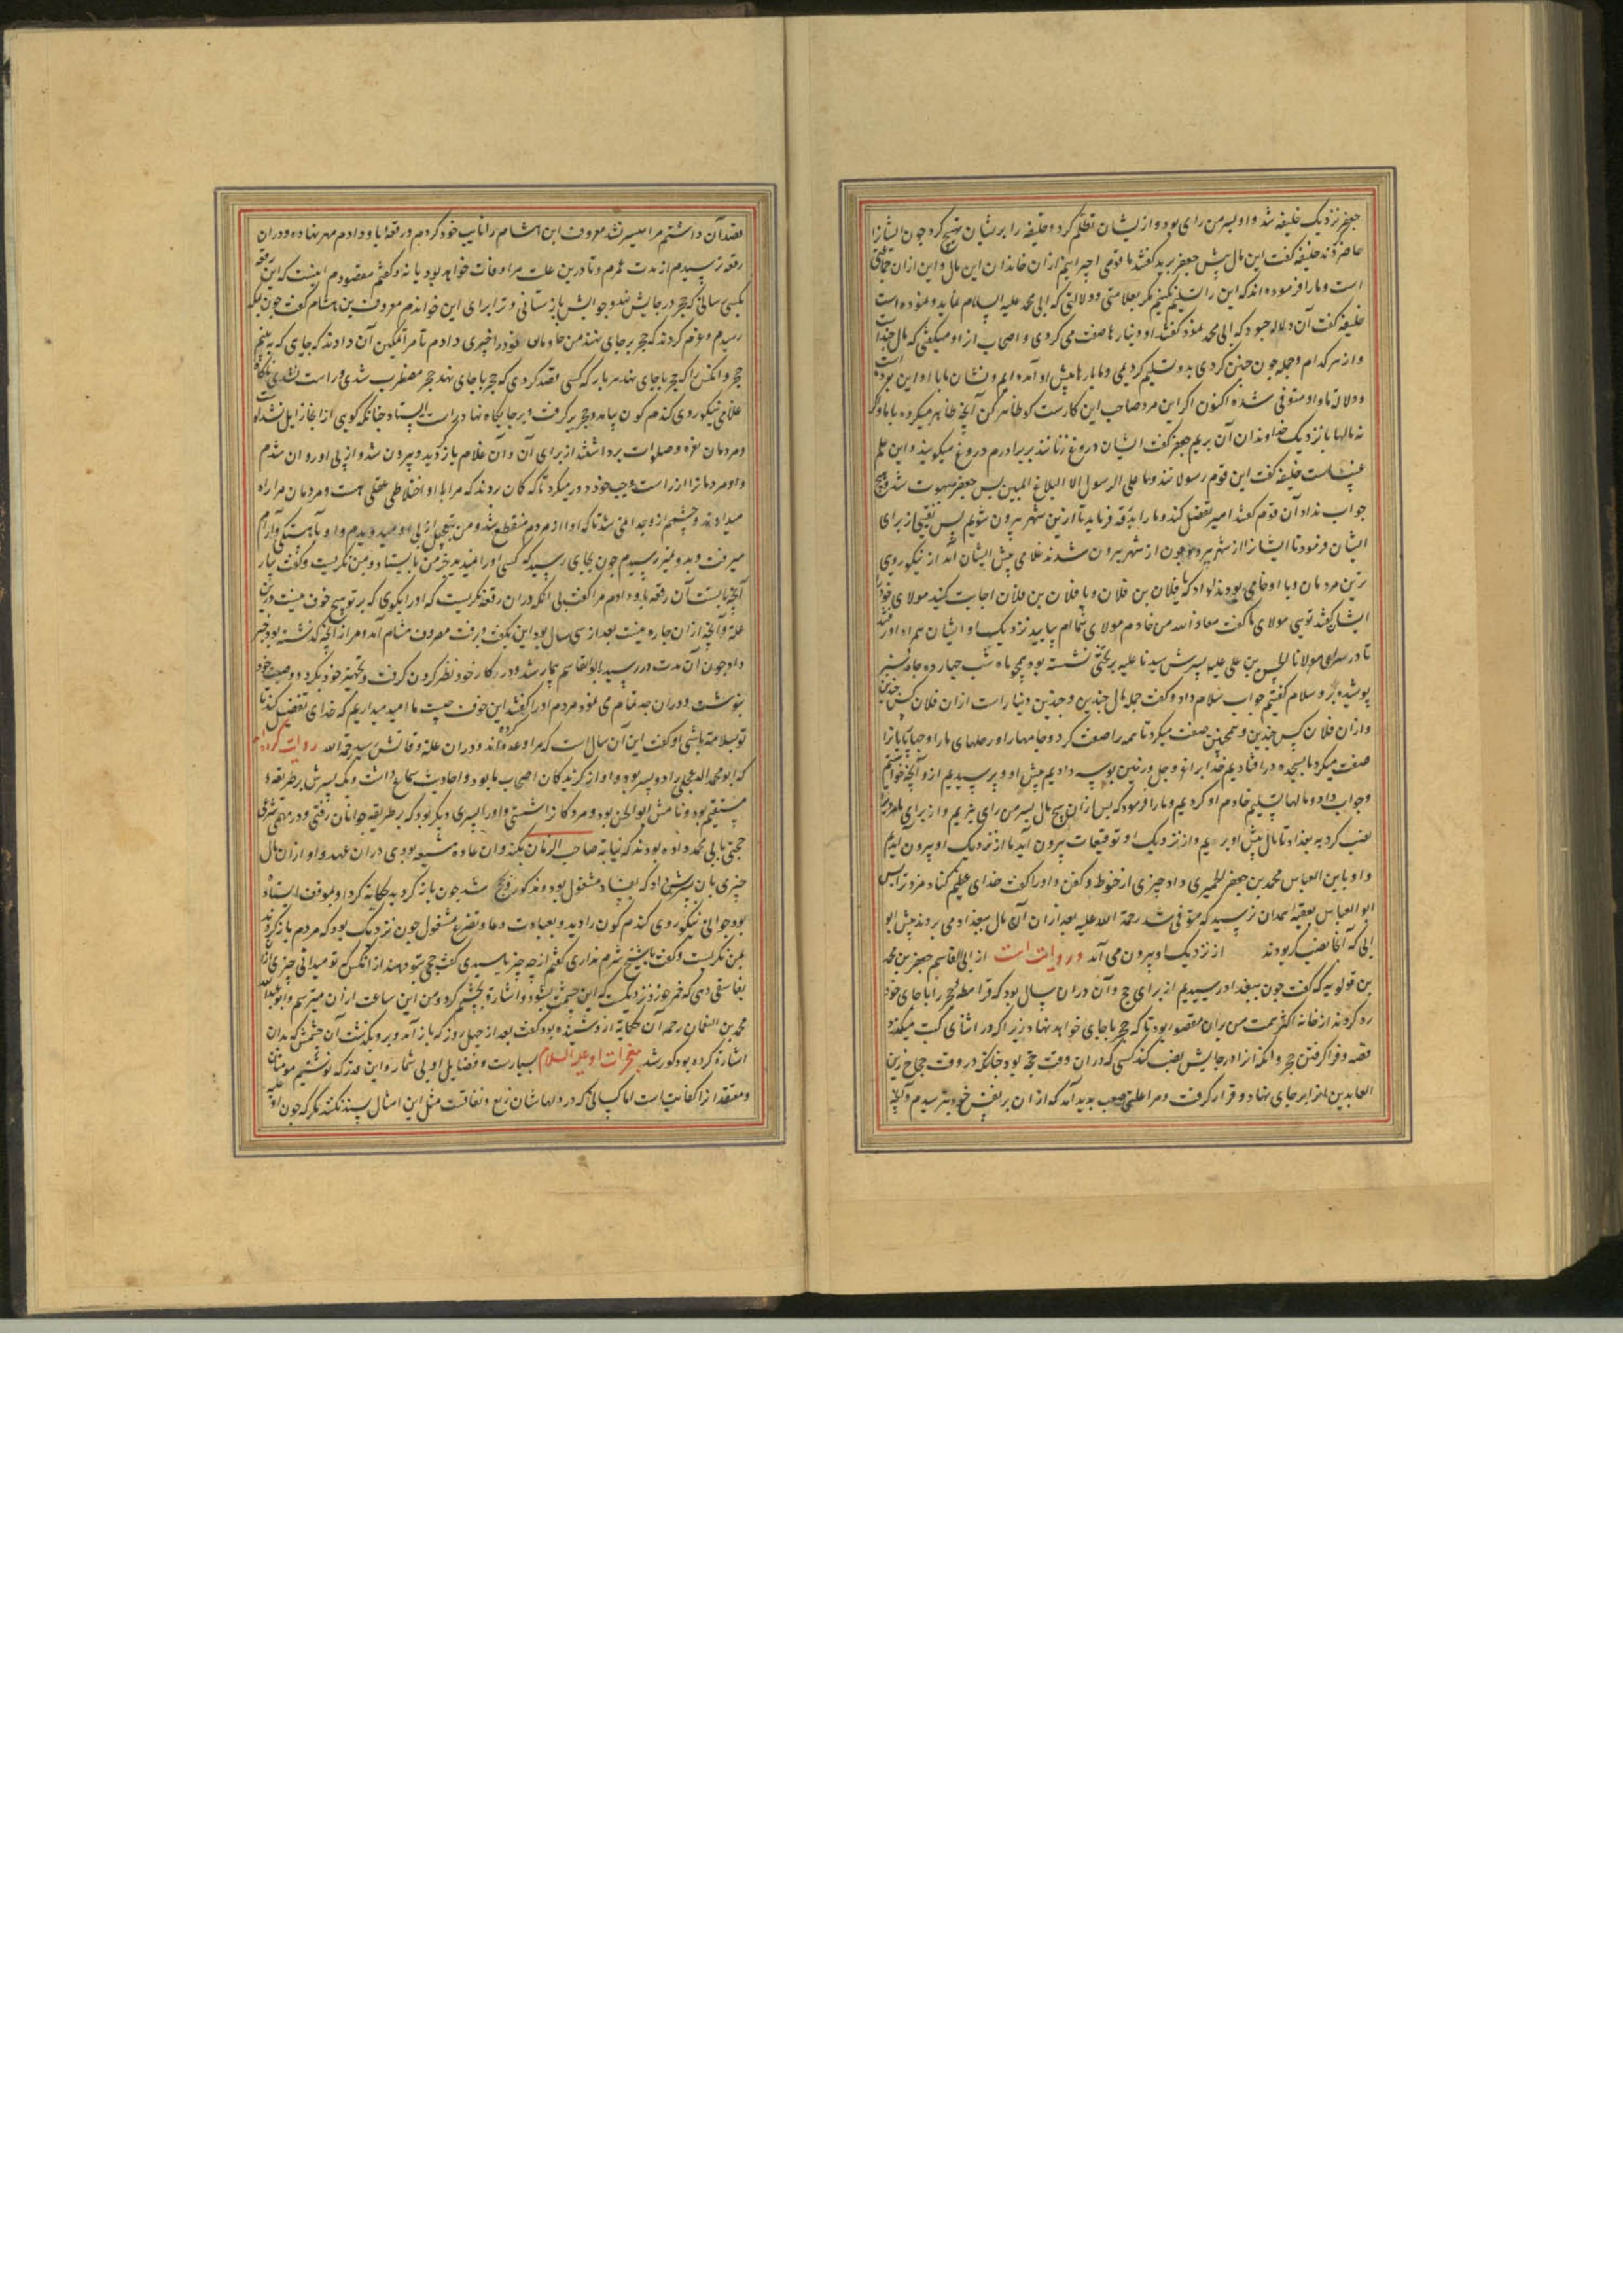 جعفر نزدیک خلیفه شد و او بسرمن رای بود و از یشان تظلم کرد و خلیفه را بریشان تهییج کرد چون ایشانرا
حاضر کردند خلیفه گفت این مال پیش جعفر برید گفتند ما قومی اجیرانیم ازان خانداران این مال و این ازان جماعتی
است و ما را فرموده اند که این را تسلیم نکنیم مگر بعلامتی و دلالتی که ابی محمد علیه السلام نماید و نموده است
خلیفه گفت آن دلاله چه بود که ابی محمد نمود گفتند او دینارها صفت می کردی و اصحاب ازو میگفتی که مال چند است
و از هر کدام و جمله چون چنین کردی بدو تسلیم کردیمی و ما بارها پیش او آمده ایم و نشان ما با او این بوده است
و دلاله ما و او متوفی شده اکنون اگر این مرد صاحب این کارست کو ظاهر کن آنچه ظاهر میکرد با ما او و اگر
نه مالها با نزدیک خداوندان آن بریم جعفر گفت ایشان دروغ زنانند بر برادرم دروغ میگویند و این علم
غیبست خلیفه گفت این قوم رسولانند وما علی الرسول الا البلاغ المبین پس جعفر مبهوت شد و هیچ
جواب نداد آن قوم گفتند امیر تفضل کند و ما را بدرقه فرماید تا ازین شهر بیرون شویم پس نقیبی از برای
ایشان فرمود تا ایشانرا از شهر بیرون برد چون از شهر بیرون شدند غلامی پیش ایشان آمد از نیکو روی
ترین مردمان و با او خادمی بود ندا داد که یا فلان بن فلان و یا فلان بن فلان اجابت کنید مولای خود را
ایشان گفتند تویی مولای ما گفت معاذ الله من خادم مولای شما ام بیایید نزدیک او ایشان همراه او رفتند
تا در سرای مولانا الحسن بن علی علیه پسرش سیدنا علیه بر تختی نشسته بود همچو ماه شب چهارده جامه سبز
پوشیده برو سلام گفتیم جواب سلام داد و گفت جمله مال چندین و چندین دینارست ازان فلان کس چندین
و ازان فلان کس چندین و همچنین صفت میکرد تا همه را صفت کرد و جامها را و رحلهای ما را و چهارپایانرا
صفت میکرد ما بسجده در افتادیم خدا را عز و جل و زمین بوسه دادیم پیش او و پرسیدیم ازو آنچه خواستیم
و جواب داد و مالها تسلیم خادم او کردیم و ما را فرمود که پس ازان هیچ مال بسرمن رای نبریم و از برای ما مردی را
نصب کرد به بغداد تا مال پیش او بریم و از نزدیک او توقیعات بیرون آید ما از نزدیک او بیرون آمدیم
و او با بن العباس محمد بن جعفر الحمیری داد چیزی از حنوط و کفن و او را گفت خدای عظیم کناد مزد ترا پس
ابو العباس بعقبه همدان نرسید که متوفی شد رحمة الله علیه بعد ازان آن مال ببغداد می بردند پیش ابو
ابی که آنجا نصب کرده بودند از نزدیک او بیرون می آمد در روایتست از ابی القاسم جعفر بن محمد
بن قولویه که گفت چون ببغداد رسیدیم از برای حج و آن دران سال بود که قرامطه حجر را با جای خود
رد کردند از خانه اکثر همت من بران مقصور بود تا که حجر با جای خواهد نهاد زیرا که در اثنای کتب میگذرد
قصه و فرا گرفتن حجر و آنکه انرا در جایش نصب کند کسی که دران وقت حجة بود چنانکه در وقت حجاج زین
العابدین انرا بر جای نهاد و قرار گرفت و مرا علتی صعب بدید آمد که ازان بر نفس خود بترسیدم و آنچه
قصد آن داشتم مرا میسر نشد معروف ابن هشام را نایب خود کردم و رقعه با و دادم مهر نهاده و دران
رقعه پرسیدم از مدت عمرم و تا درین علت مرا وفات خواهد بود یا نه و گفتم مقصودم اینست که این رقعه
بکسی رسانی که حجر در جایش نهد و جوابش بازستانی و ترا برای این خواندم معروف بن هشام گفت چون بمکه
رسیدم و عزم کردند که حجر بر جای نهند من خادمان خود را چیزی دادم تا مرا تمکین آن دادند که جای که به بینم
حجر و انکس را که حجر با جای نهد هر بار که کسی قصد کردی که حجر با جای نهد حجر مضطرب شدی و راست نشدی ناگاه
غلامی نیکو روی گندم کون بیامد و حجر بر گرفت و بر جایگاه نهاد و راست بایستاد چنانکه گویی ازانجا زایل نشده است
و مردمان نعره و صلوات برداشتند از برای آن و آن غلام باز گردید و بیرون شد و از پی او روان شدم
و او مردمانرا از راست و چپ خود دور میکرد تا که گمان بردند که مرا با او اختلاطی عقلی هست و مردمان مرا راه
میدادند و چشمم ازو جدا نمی شد تا که او از مردم منقطع شد و من بتعجیل از پی او میدویدم و او بآهستگی و آرام
میرفت و بدو نمی رسیدم چون بجای رسید که کسی او را نمیدید جز من بایستاد و بمن نگریست و گفت بیار
آنچه با تست آن رقعه با و دادم مرا گفت بی آنکه دران رقعه نگریست که او را بگوی که بر تو هیچ خوف نیست درین
علة و آنچه ازان چاره نیست بعد از سی سال بود این بگفت و برفت معروف هشام آمد و مرا از آنچه گذشته بود خبر
داد چون آن مدت در رسید ابو القاسم بیمار شد و در کار خود نظر کردن گرفت و تجهیز خود بکرد و وصیت خود
بنوشت و دران جد تمام می نمود مردم او را گفتند این خوف چیست ما امید میداریم که خدای تفضل کند تا
تو بسلامت باشی او گفت این آن سال است که مرا وعده داده اند و دران علة وفاتش رسید رحمه الله روایت کرده اند
که ابو محمد الدعلجی را دو پسر بود و او از گزیدگان اصحاب ما بود و احادیث سماع داشت و یک پسرش بر طریقه
مستقیم بود و نامش ابو الحسن بود و مردگانرا شستی و او را پسری دیگر بود که بر طریقه جوانان رفتی و در مهمی شرعی
حجتی بابی محمد داده بودند که نیابة صاحب الزمان بکند و آن عاده شیعه بودی دران عهد و او ازان مال
چیزی بان پسرش داد که بفساد مشغول بود و مذکور و حج شد چون باز گردید حکایة کرد او بموقف ایستاده
بود جوانی نیکو روی گندم گون را دید و بعبادت و دعا و تضرع مشغول چون نزدیک بود که مردم باز گردند
بمن نگریست و گفت یا شیخ شرم نداری گفتم از چه چیز یا سیدی گفت حجی بتو دهند از انکس که تو میدانی چیزی از آن
بفاسقی دهی که خمر خورد نزدیکست که این چشمت بشود و اشارة بچشمم کرد و من این ساعت ازان میترسم و ابو عبد الله
محمد بن النعمان رحمه آن حکایة ازو شنیده بود گفت بعد از چهل روز که باز آمد و برو بگذشت آن چشمش که بدان
اشارة کرده بود کور شد معجزات او علیه السلام بسیارست و فضایل او بی شمار و این قدر که نوشتیم مومنان
و معتقدانرا کفایتست اما کسانی که در دلهاشان زیغ و نفاقست مثل این امثال پسند نکنند مگر که چون او علیه